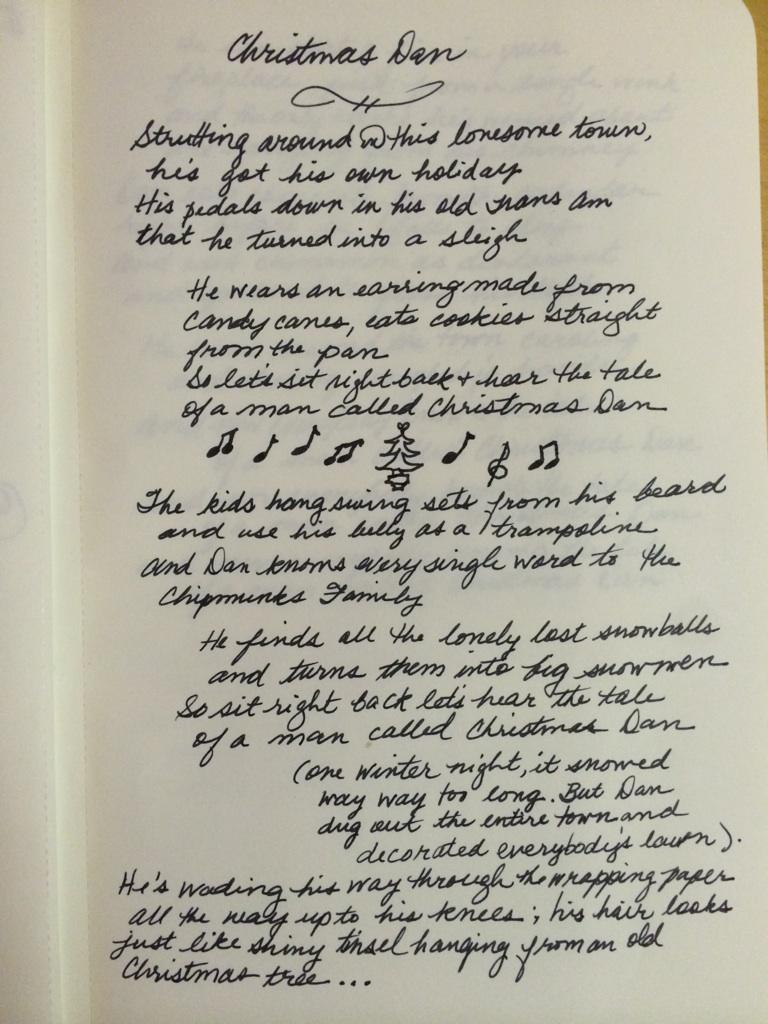 Christmas Dan
Strutting around in this lonesome town,
he's got his own holiday
His pedals down in his old Trans Am
that he turned into a sleigh
He wears an earring made from
candy canes, eats cookies straight
from the pan
So let's sit right back + hear the tale
of a man called Christmas Dan
The kids hang swing sets from his beard
and use his belly as a trampoline
and Dan knows every single word to the
Chipmunks Family
He finds all the lonely lost snowballs
and turns them into big snowmen
So sit right back let's hear the tale
of a man called Christmas Dan
(one winter night, it snowed
way way too long. But Dan
dug out the entire town and
decorated everybody's lawn).
He's wading his way through the wrapping paper
all the way up to his knees; his hair looks
just like shiny tinsel hanging from an old
Christmas tree...